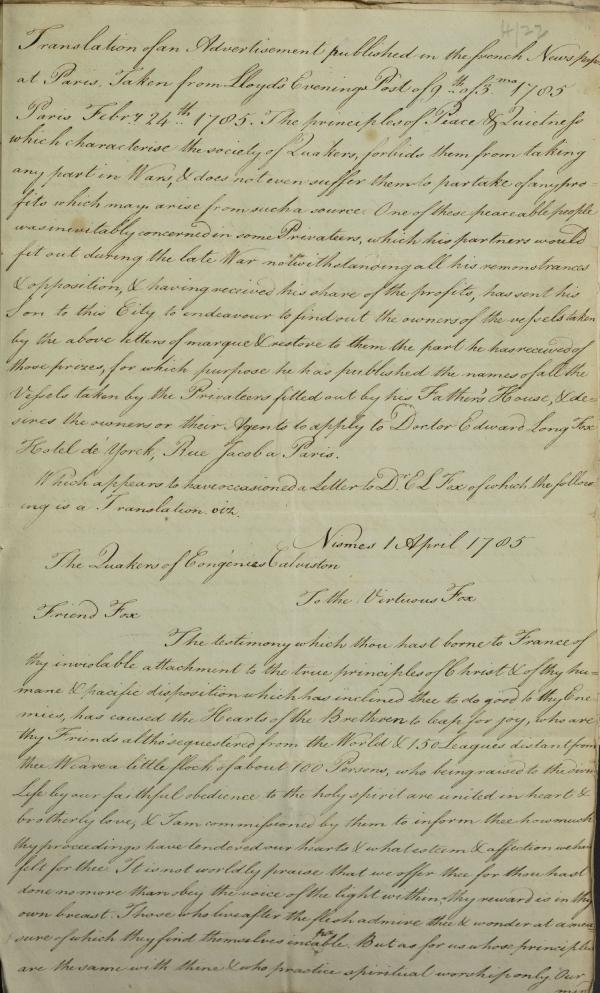 4/22
Translation of an Advertisement published in the french News pape
at Paris. Taken from Lloyd's Evening Post of 9th of 3mo 1785
Paris Febry 24th 1785. The principles of Peace & Quietness
which characterise the society of Quakers, forbids them from taking
any part in Wars, & does not even suffer them to partake of any pro=
fits which may arise from such a source. One of these peaceable people
was inevitably concerned in some Privateers, which his partners would
fit out during the late War notwithstanding all his remonstrances
& opposition, & having received his share of the profits, has sent his
Son to this City to endeavour to find out the owners of the vessels taken
by the above letters of marque & restore to them the part he has received of
those prizes, for which purpose he has published the names of all the
Vessels taken by the Privateers fitted out by his Father's House, & de=
sires the owners or their Agents to apply to Doctor Edward Long Fox
Hotel de Yorck, Rue Jacob a Paris.
Which appears to have occasioned a Letter to Dr E L Fox of which the follow
ing is a Translation. viz.
Nismes 1 April 1785
The Quakers of Congenies Calvisson
To the Virtuous Fox
Friend Fox
The testimony which thou hast borne to France of
thy inviolable attachment to the true principles of Christ & of thy hu=
mane & pacific disposition which has inclined thee to do good to thy Ene=
mies, has caused the Hearts of the Brethren to leap for joy, who are
thy Friends altho sequestired from the World & 150 Leagues distant from
thee. We are a little flock of about 100 Persons, who being raised to the divin
Life by our faithful obedience to the holy spirit are united in heart &
brotherly love, & I am commissioned by them to inform thee how much
thy proceedings have tendered our hearts & what esteem & affection we have
felt for thee. It is not worldly praise that we offer thee for thou hast
done no more than obey the voice of the light within thy reward is in thy
own breast. Those who live after the flesh admire thee & wonder at a mea
sure of which they find themselves incapable. But as for us whose principles
are the same with thine & who practice spiritual worship only Our
mind